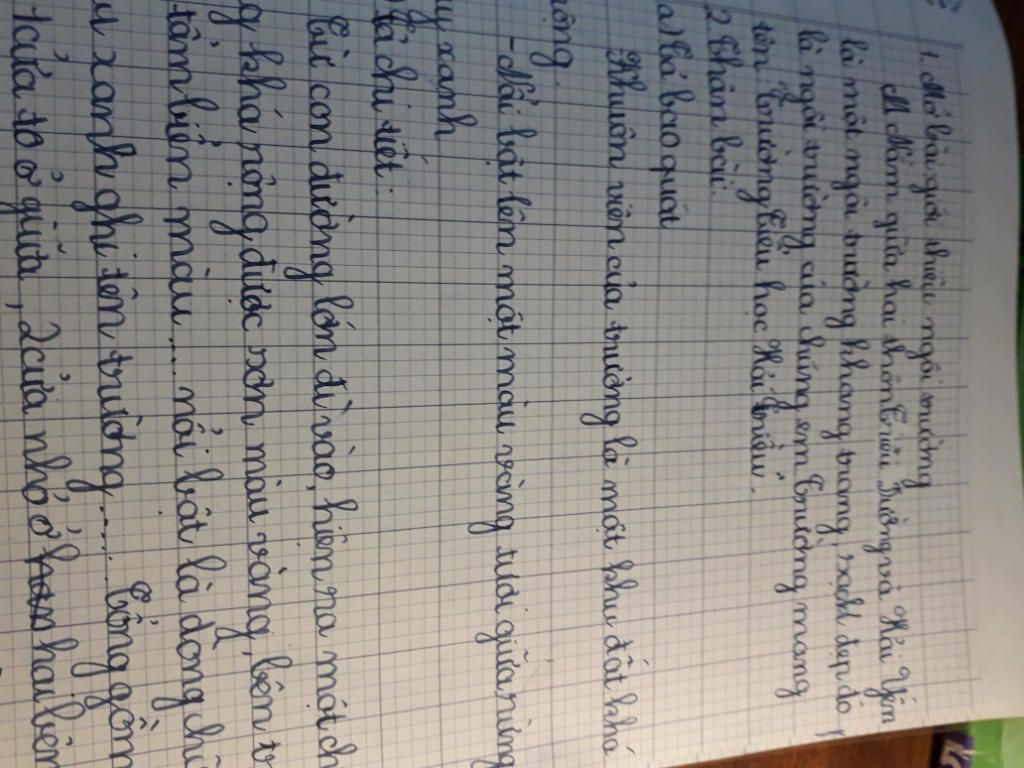 1. Mở bài: giới thiệu ngôi trường
Nằm giữa hai thôn Triều Dương và Hải Yến
là một ngôi trường khang trang, sạch đẹp đó
là ngôi trường của chúng em Trường mang
tên Trường Tiểu học Hải Triều.
2. Thân bài:
a) Tả bao quát
Khuôn viên của trường là một khu đất khá
rộng.
- Nổi bật lên một màu vàng tươi giữa rừng
xanh
tả chi tiết:
Từ con đường lớn đi vào, hiện ra một
khá rộng được sơn màu vàng, bên
tấm biển màu.... nổi bật là dòng chữ
xanh ghi tên trường..... Cổng gồm
1 cửa to ở giữa, 2 cửa nhỏ ở hai bên